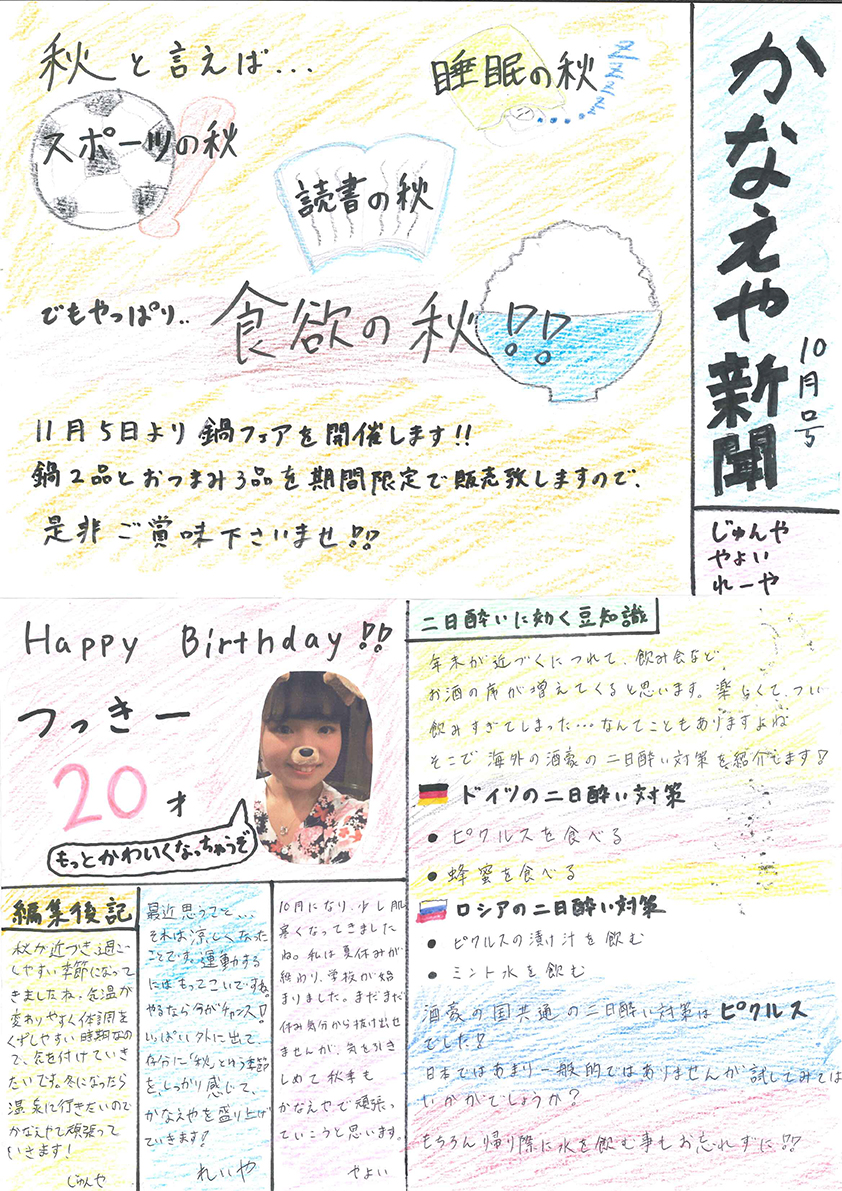 かなえや新聞
10月号
じゅんや
やよい
れーや
秋と言えば...
睡眠の秋
zzzzz
スポーツの秋
読書の秋
でもやっぱり..
食欲の秋!!
11月5日より鍋フェアを開催します!!
鍋2品とおつまみ3品を期間限定で販売致しますので、
是非ご賞味下さいませ!!
Happy Birthday!!
つっきー
20才
もっとかわいくなっちゃうぞ
二日酔いに効く豆知識
年末が近づくにつれて、飲み会など
お酒の席が増えてくると思います。楽しくて、つい
飲みすぎてしまった…なんてこともありますよね
そこで海外の酒豪の二日酔い対策を紹介します!
ドイツの二日酔い対策
● ピクルスを食べる
● 蜂蜜を食べる
ロシアの二日酔い対策
● ピクルスの漬け汁を飲む
● ミント水を飲む
酒豪の国共通の二日酔い対策はピクルス
でした!
日本ではあまり一般的ではありませんが試してみては
いかがでしょうか?
もちろん帰り際に水を飲む事もお忘れずに!!
編集後記
秋が近づき、過ご
しやすい季節になって
きましたね。気温が
変わりやすく体調を
くずしやすい時期なの
で、気を付けていき
たいです。冬になったら
温泉に行きたいので
かなえやで頑張って
いきます!
じゅんや
最近思うこと…
それは涼しくなった
ことです。運動する
にはもってこいですね。
やるなら今がチャンス!
いっぱい外に出て、
存分に「秋」という季節
を、しっかり感じて、
かなえやを盛り上げ
ていきます!
れいや
10月になり、少し肌
寒くなってきました
ね。私は夏休みが
終わり、学校が始
まりました。まだまだ
休み気分から抜け出せ
ませんが、気を引き
しめて秋季も
かなえやで頑張っ
ていこうと思います。
やよい